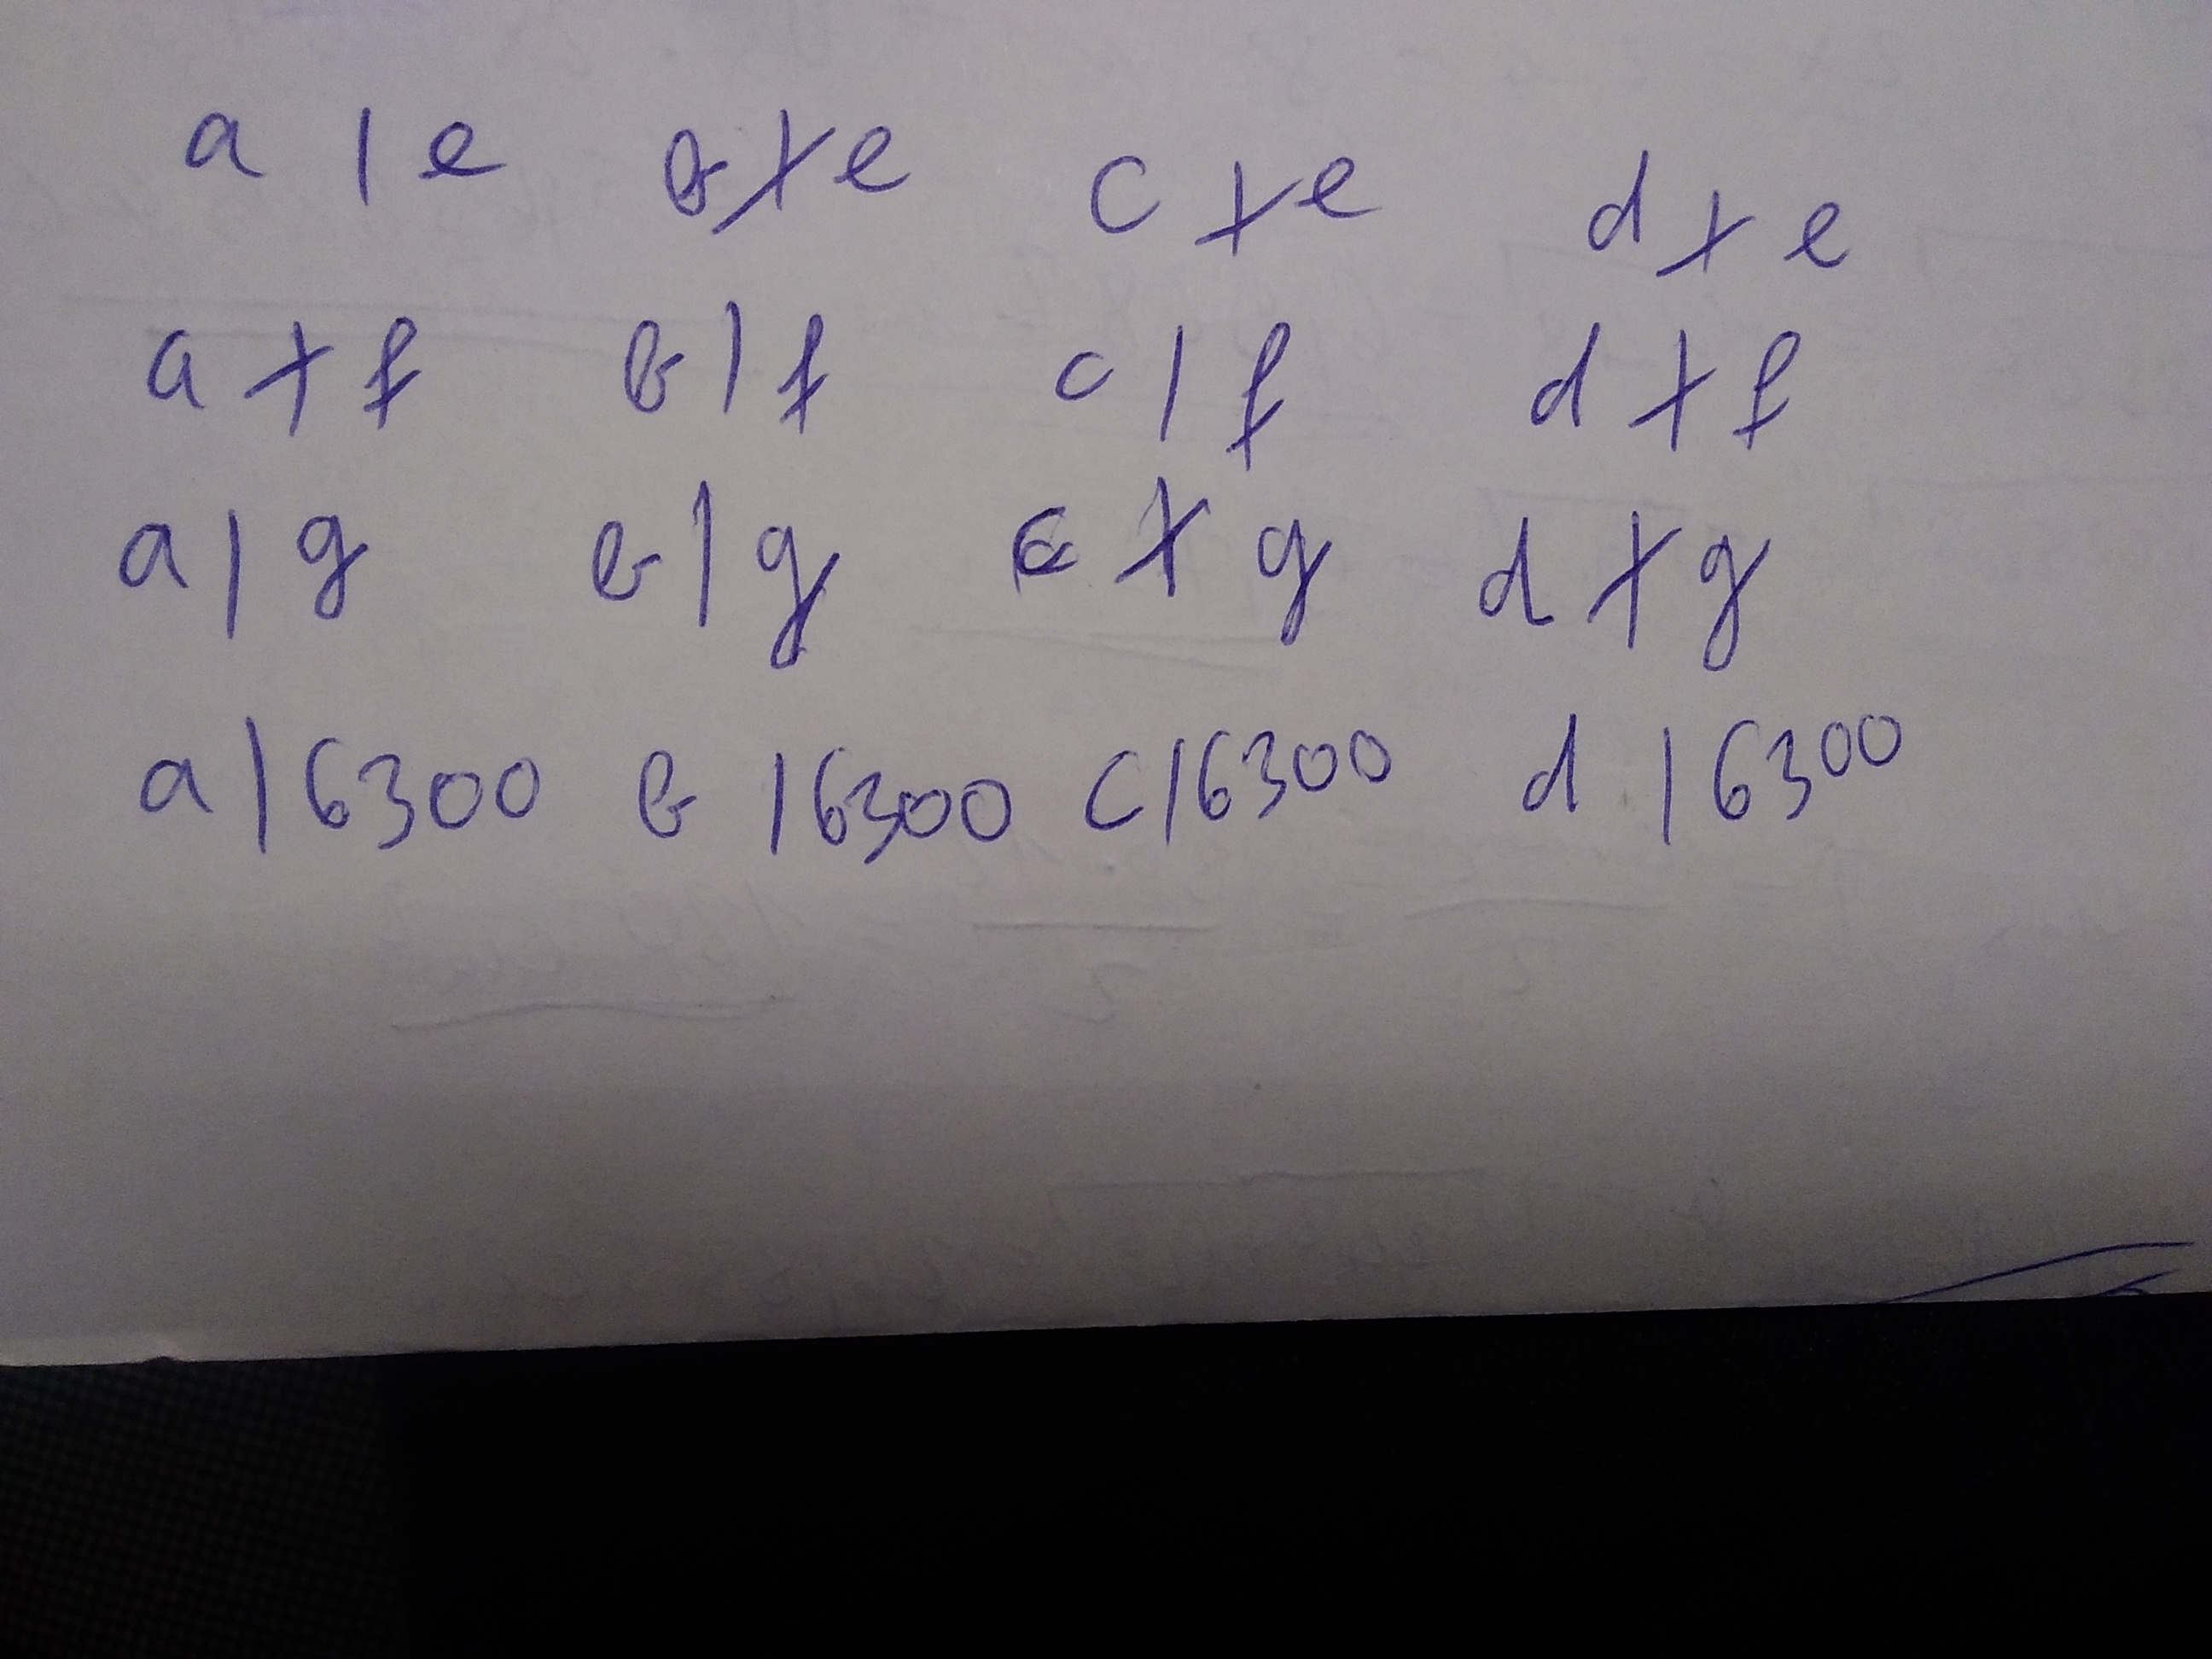 a | e b ∤ e c ∤ e d ∤ e
a ∤ f b | f c | f d ∤ f
a | g b | g c ∤ g d ∤ g
a | 6300 b | 6300 c | 6300 d | 6300